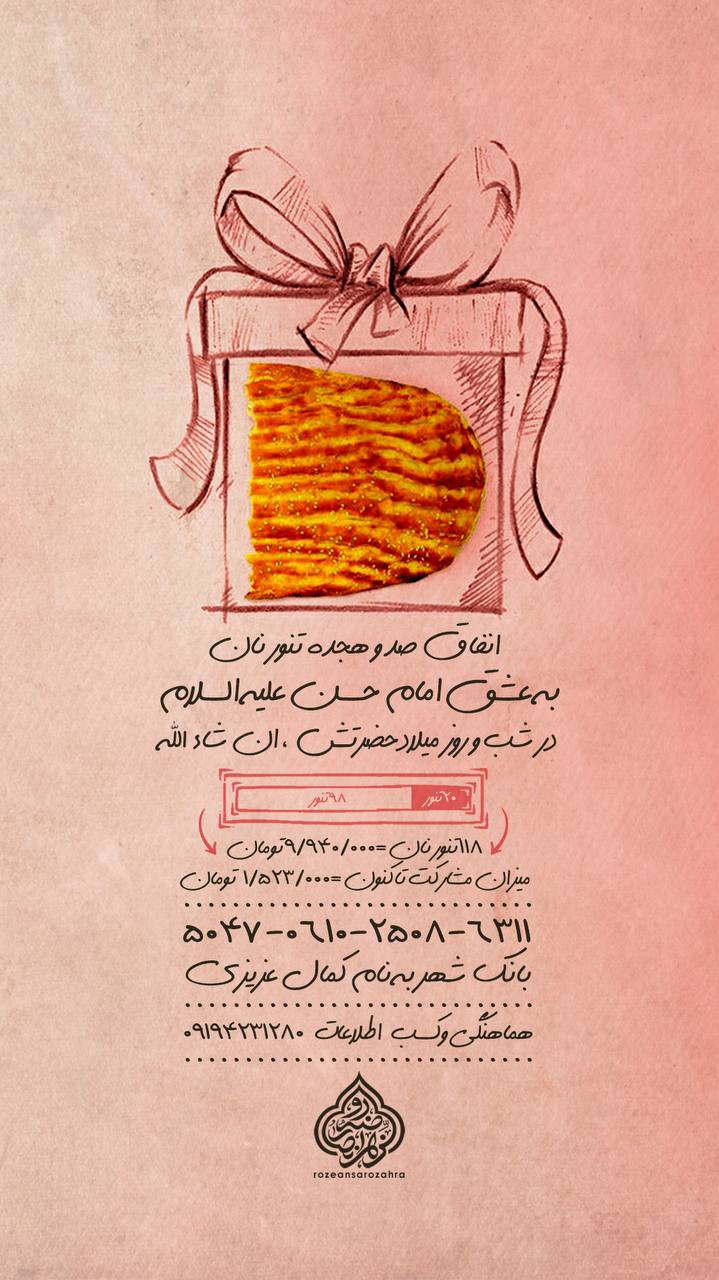 انفاق صد و هجده تنور نان
به عشق امام حسن علیه‌السلام
در شب و روز میلاد حضرتش ، ان شاء الله
۲۰ تنور ۹۸ تنور
۱۱۸ تنور نان = ۹/۹۴۰/۰۰۰ تومان
میزان مشارکت تاکنون = ۱/۵۲۳/۰۰۰ تومان
۵۰۴۷-۰۶۱۰-۲۵۰۸-۶۳۱۱
بانک شهر به نام کمال عزیزی
هماهنگی و کسب اطلاعات ۰۹۱۹۴۲۳۱۲۸۰
rozeansarozahra